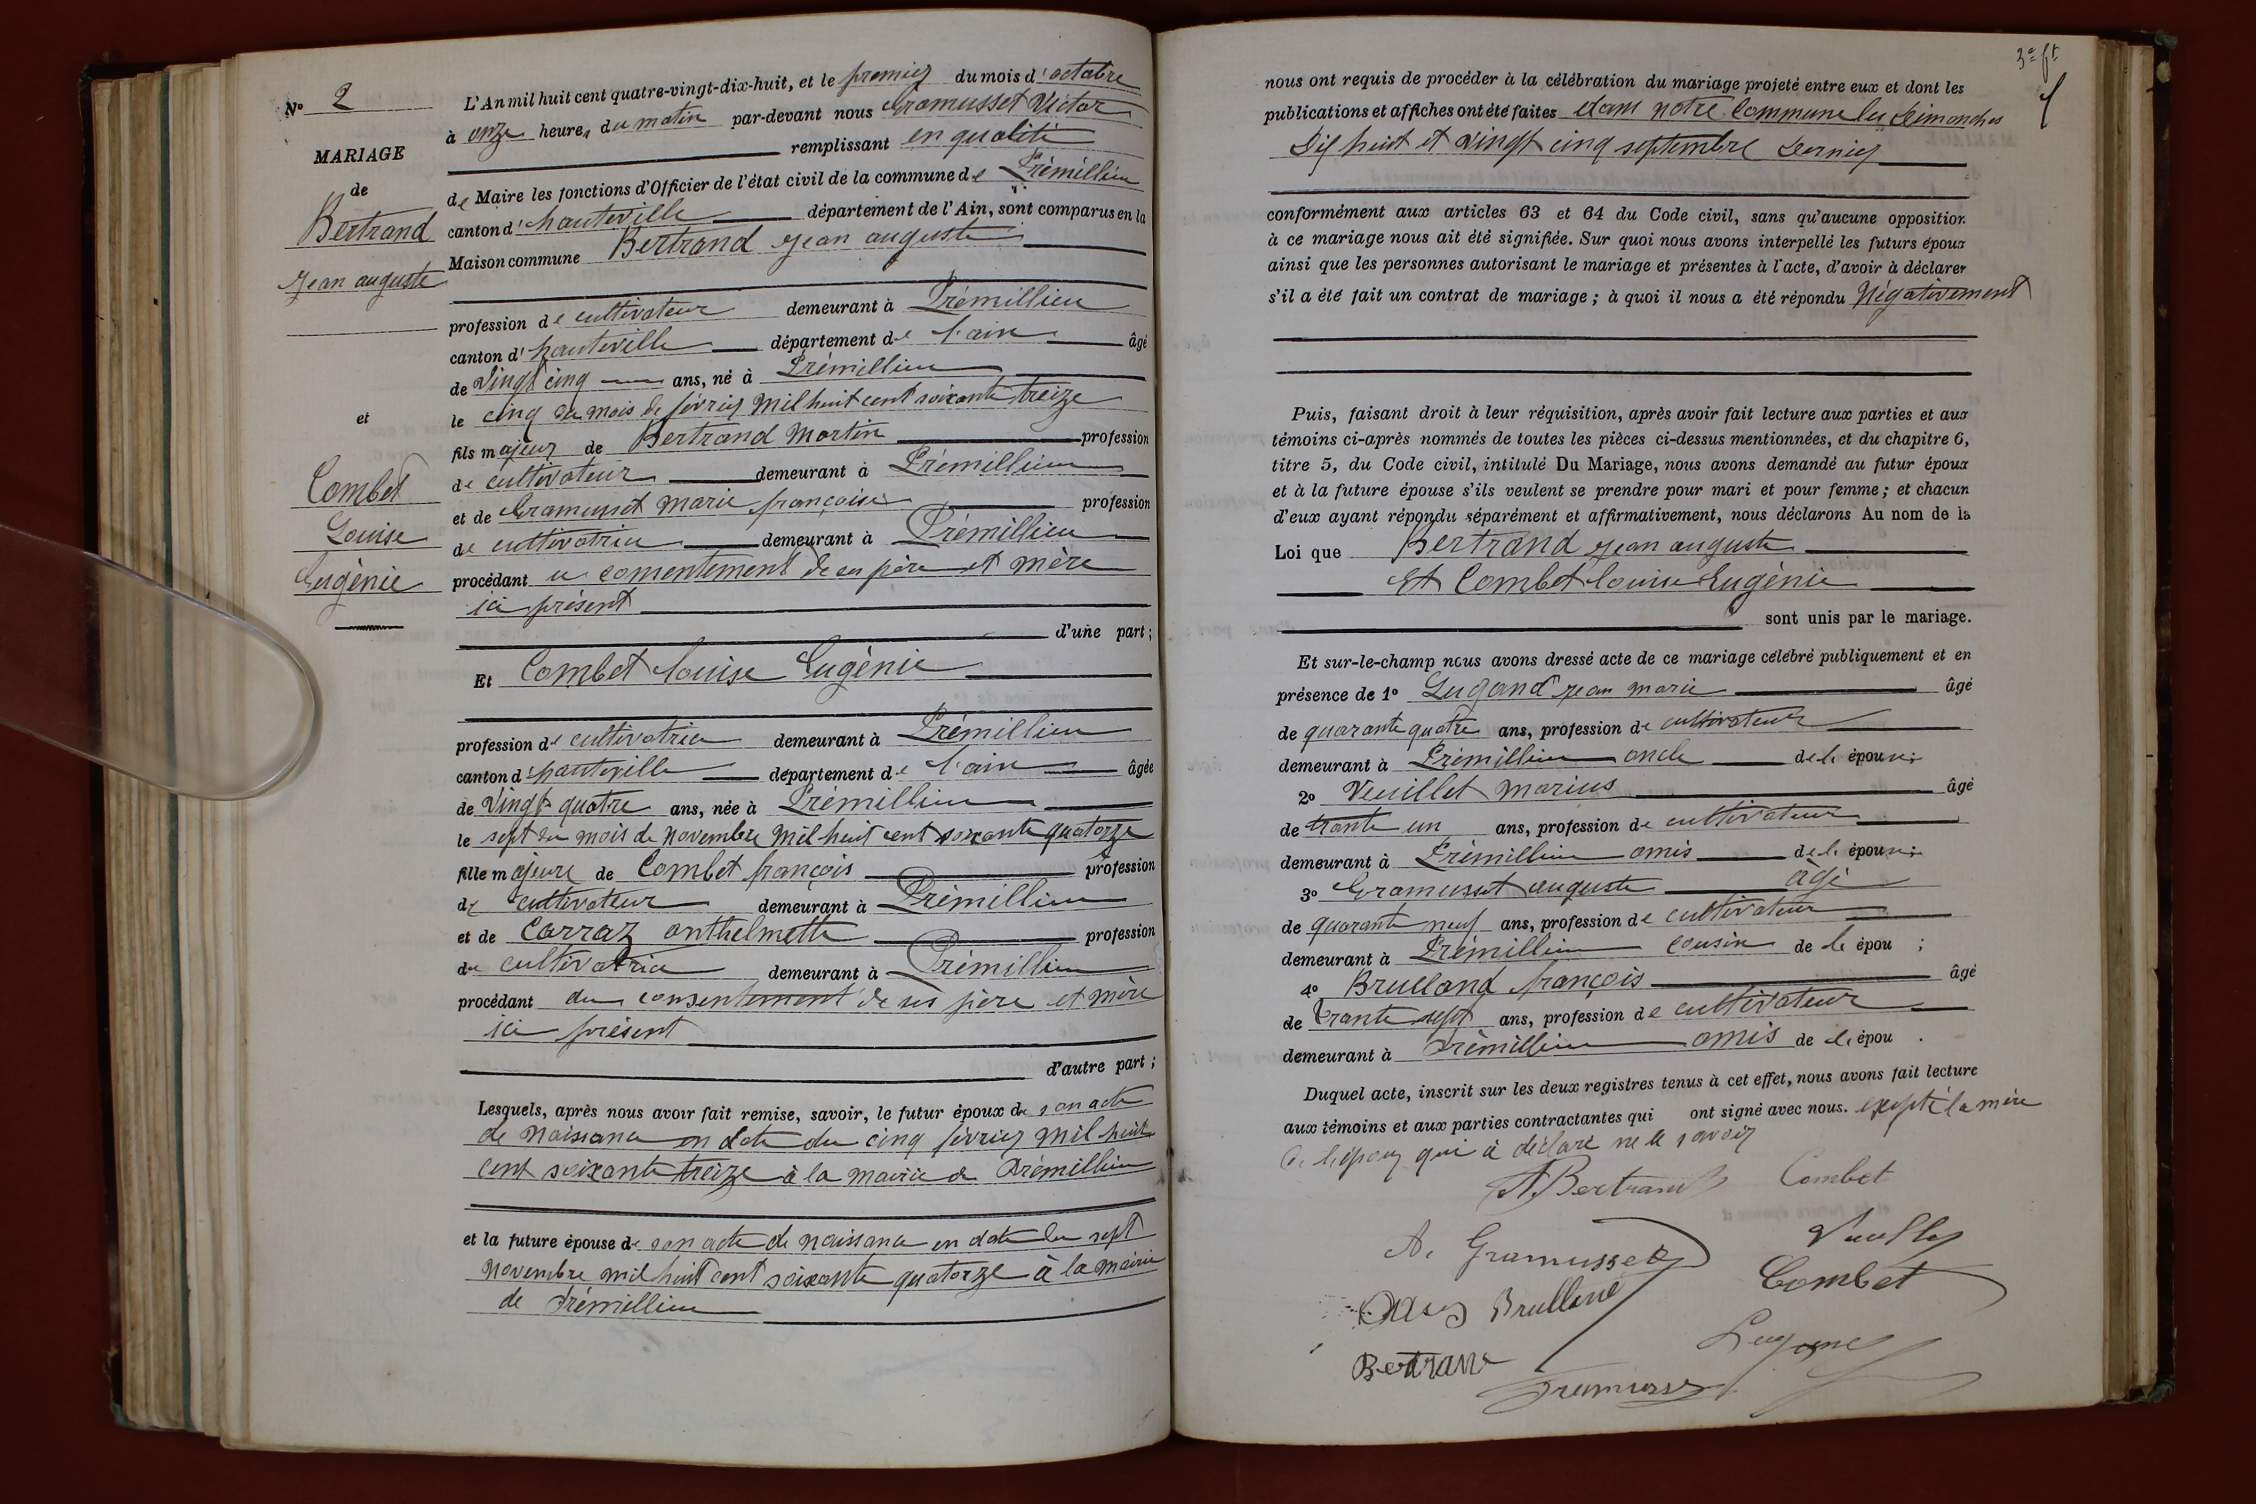 N° 2
MARIAGE
de
Bertrand
Jean auguste
et
Combet
Louise
Eugénie
L'An mil huit cent quatre-vingt-dix-huit, et le premier du mois d'octobre
à onze heures du matin par-devant nous Gramusset Victor
remplissant en qualité
de Maire les fonctions d'Officier de l'état civil de la commune de Prémillieu
canton d'hauteville département de l'Ain, sont comparus en la
Maison commune Bertrand Jean auguste
profession de cultivateur demeurant à Prémillieu
canton d'hauteville département de l'ain âgé
de Vingt cinq ans, né à Prémillieu
le cinq du mois de février Mil huit cent soixante treize
fils majeur de Bertrand Martin profession
de cultivateur demeurant à Prémillieu
et de Gramusset Marie françoise profession
de cultivatrice demeurant à Prémillieu
procédant du consentement de ses père et mère
ici présent
d'une part;
Et Combet louise Eugénie
profession de cultivatrice demeurant à Prémillieu
canton d'hauteville département de l'ain âgée
de Vingt quatre ans, née à Prémillieu
le sept du mois de Novembre Mil huit cent soixante quatorze
fille majeure de Combet françois profession
de cultivateur demeurant à Prémillieu
et de Carraz anthelmette profession
de cultivatrice demeurant à Prémillieu
procédant du consentement de ses père et mère
ici présent
d'autre part;
Lesquels, après nous avoir fait remise, savoir, le futur époux de son acte
de Naissance en date du cinq février Mil huit
cent soixante treize à la Mairie de Prémillieu
et la future épouse de son acte de Naissance en date du sept
Novembre mil huit cent soixante quatorze à la mairie
de Prémillieu
3e ft
nous ont requis de procéder à la célébration du mariage projeté entre eux et dont les
publications et affiches ont été faites dans notre Commune les Dimanches
Dix huit et Vingt cinq septembre Dernier
conformément aux articles 63 et 64 du Code civil, sans qu'aucune opposition
à ce mariage nous ait été signifiée. Sur quoi nous avons interpellé les futurs époux
ainsi que les personnes autorisant le mariage et présentes à l'acte, d'avoir à déclarer
s'il a été fait un contrat de mariage; à quoi il nous a été répondu Négativement
Puis, faisant droit à leur réquisition, après avoir fait lecture aux parties et aux
témoins ci-après nommés de toutes les pièces ci-dessus mentionnées, et du chapitre 6,
titre 5, du Code civil, intitulé Du Mariage, nous avons demandé au futur époux
et à la future épouse s'ils veulent se prendre pour mari et pour femme; et chacun
d'eux ayant répondu séparément et affirmativement, nous déclarons Au nom de la
Loi que Bertrand Jean auguste
Et Combet louise Eugénie
sont unis par le mariage.
Et sur-le-champ nous avons dressé acte de ce mariage célébré publiquement et en
présence de 1° Lugand Jean marie âgé
de quarante quatre ans, profession de cultivateur
demeurant à Prémillieu oncle de l'épou
2° Veuillet Marius âgé
de trante un ans, profession de cultivateur
demeurant à Prémillieu amis de l'épou
3° Gramusset auguste âgé
de quarante neuf ans, profession de cultivateur
demeurant à Prémillieu cousin de l'épou ;
4° Brulland françois âgé
de trante sept ans, profession de cultivateur
demeurant à Prémillieu amis de l'épou .
Duquel acte, inscrit sur les deux registres tenus à cet effet, nous avons fait lecture
aux témoins et aux parties contractantes qui ont signé avec nous. excepté la mère
de l'époux qui à déclaré ne le savoir
A Bertrand Combet
A. Gramusset
Combet
Brulland
Bertrand